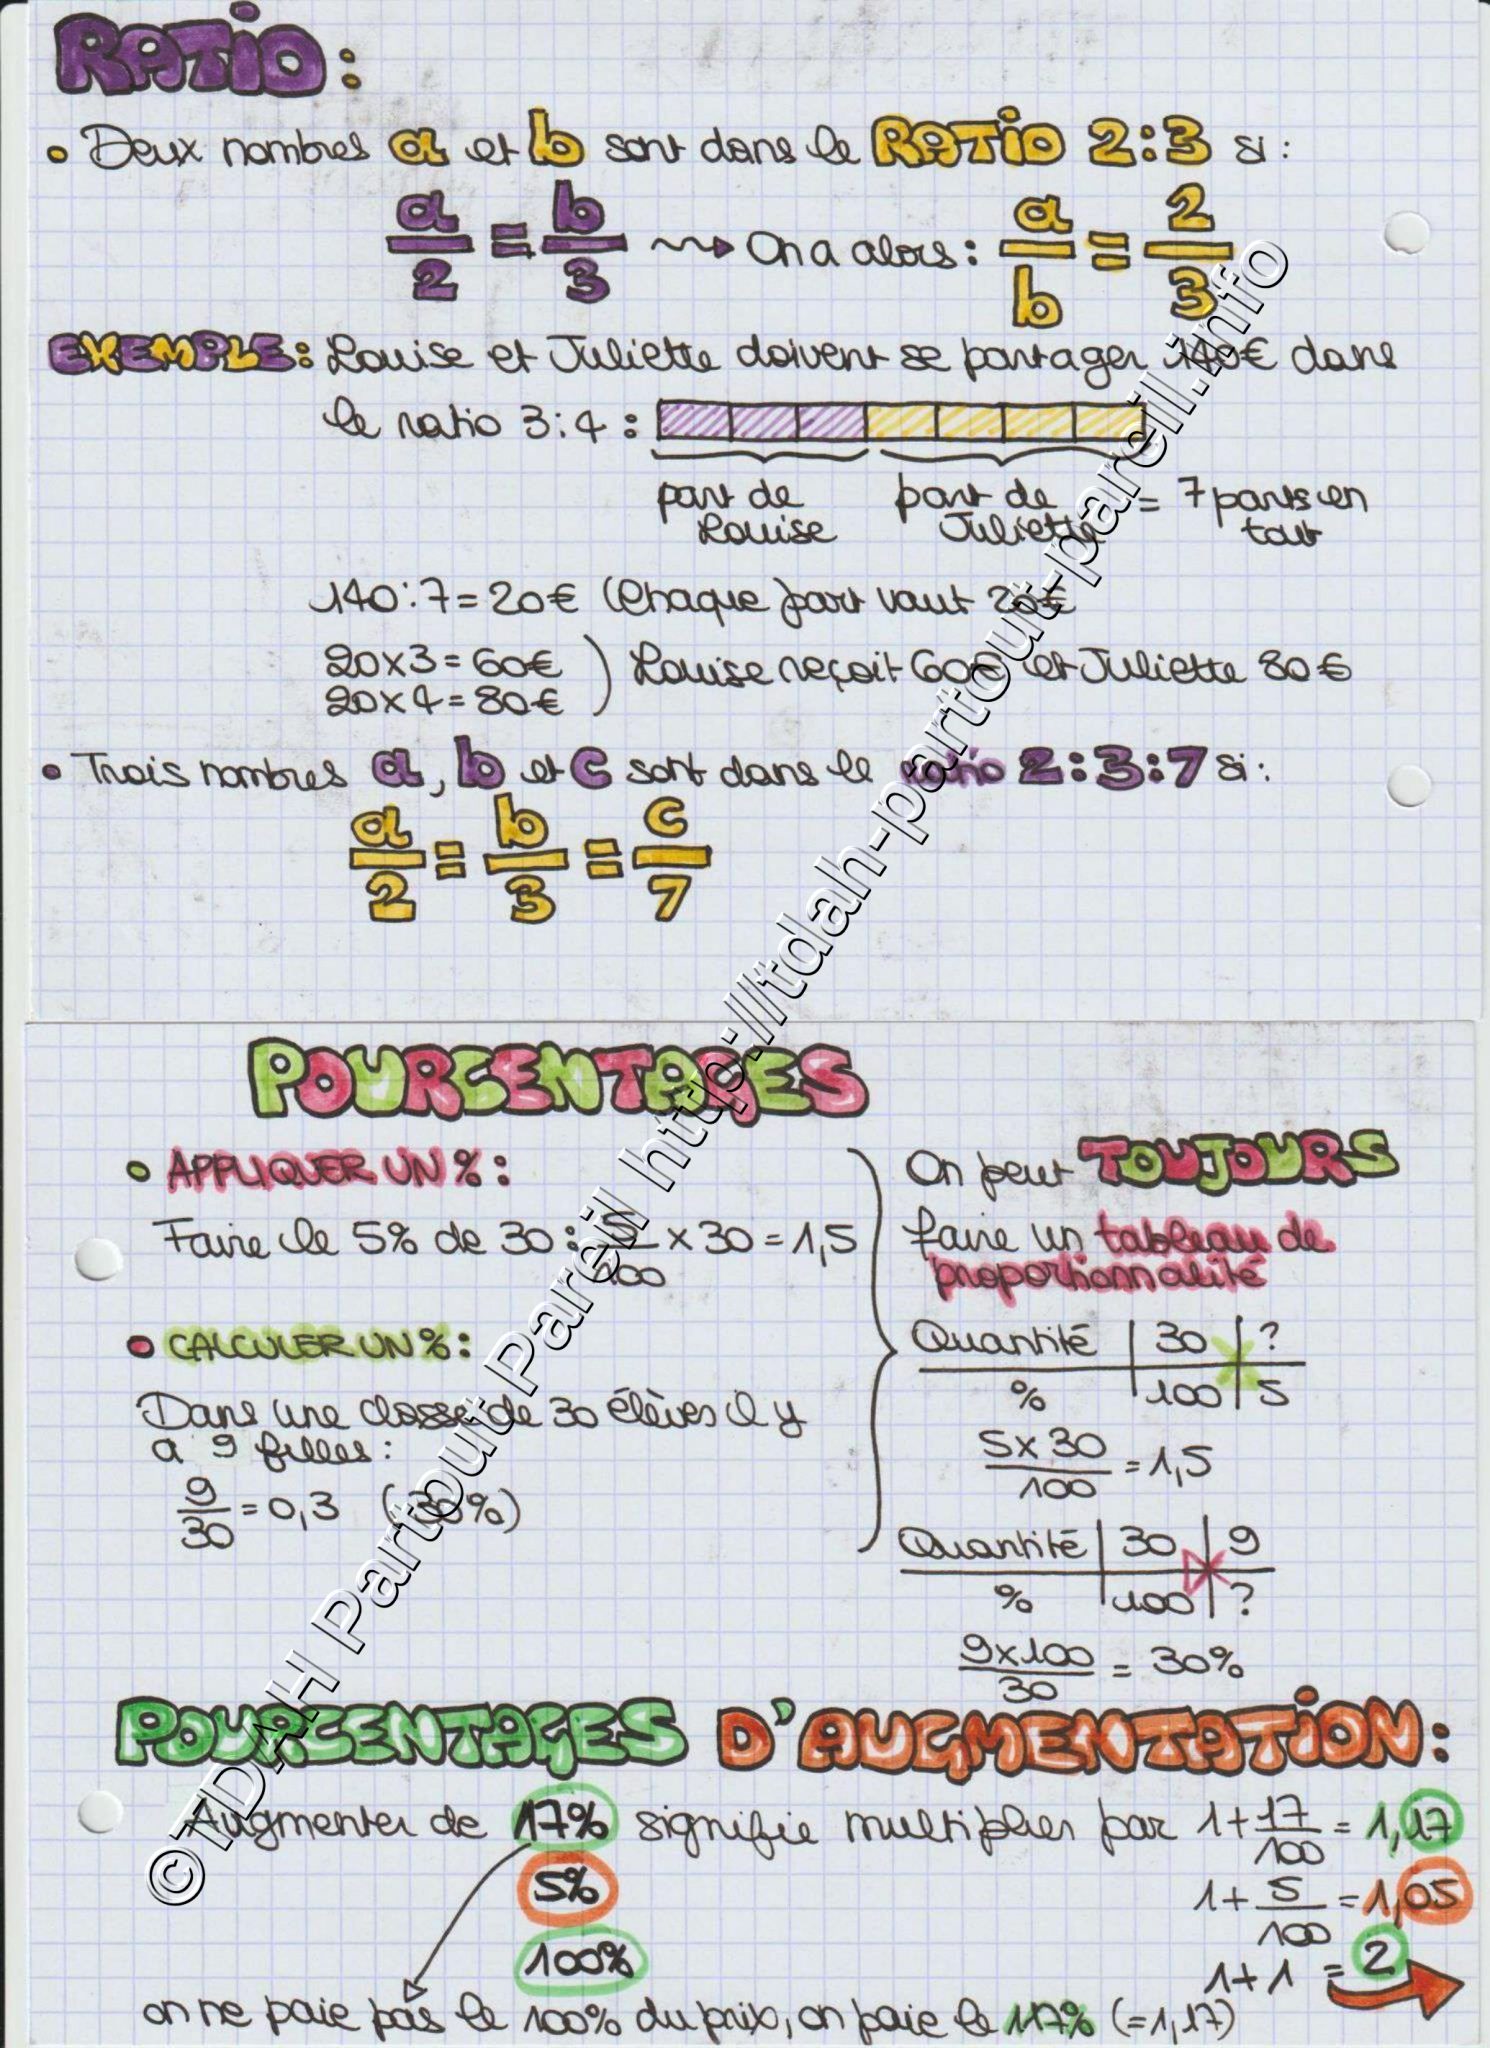 RATIO :
• Deux nombres a et b sont dans le RATIO 2:3 si :
a/2 = b/3 ⇝ On a alors : a/b = 2/3
EXEMPLE : Louise et Juliette doivent se partager 140€ dans
le ratio 3:4 :
part de Louise
part de Juliette
= 7 parts en tout
140:7 = 20€ (Chaque part vaut 20€
20x3 = 60€
20x4 = 80€
) Louise reçoit 60€ et Juliette 80€
• Trois nombres a, b et c sont dans le ratio 2:3:7 si :
a/2 = b/3 = c/7
POURCENTAGES
• APPLIQUER UN % :
Faire le 5% de 30 : 5/100 x 30 = 1,5
• CALCULER UN % :
Dans une classe de 30 élèves il y
a 9 filles :
9/30 = 0,3 (30%)
On peut TOUJOURS
faire un tableau de
proportionnalité
Quantité | 30 | ?
% | 100 | 5
5x30/100 = 1,5
Quantité | 30 | 9
% | 100 | ?
9x100/30 = 30%
POURCENTAGES D'AUGMENTATION :
Augmenter de 17% signifie multiplier par 1+17/100 = 1,17
5% 1+5/100 = 1,05
100% 1+1 = 2
on ne paie pas le 100% du prix, on paie le 117% (=1,17)
©TDAH Partout Pareil http://tdah-partout-pareil.info